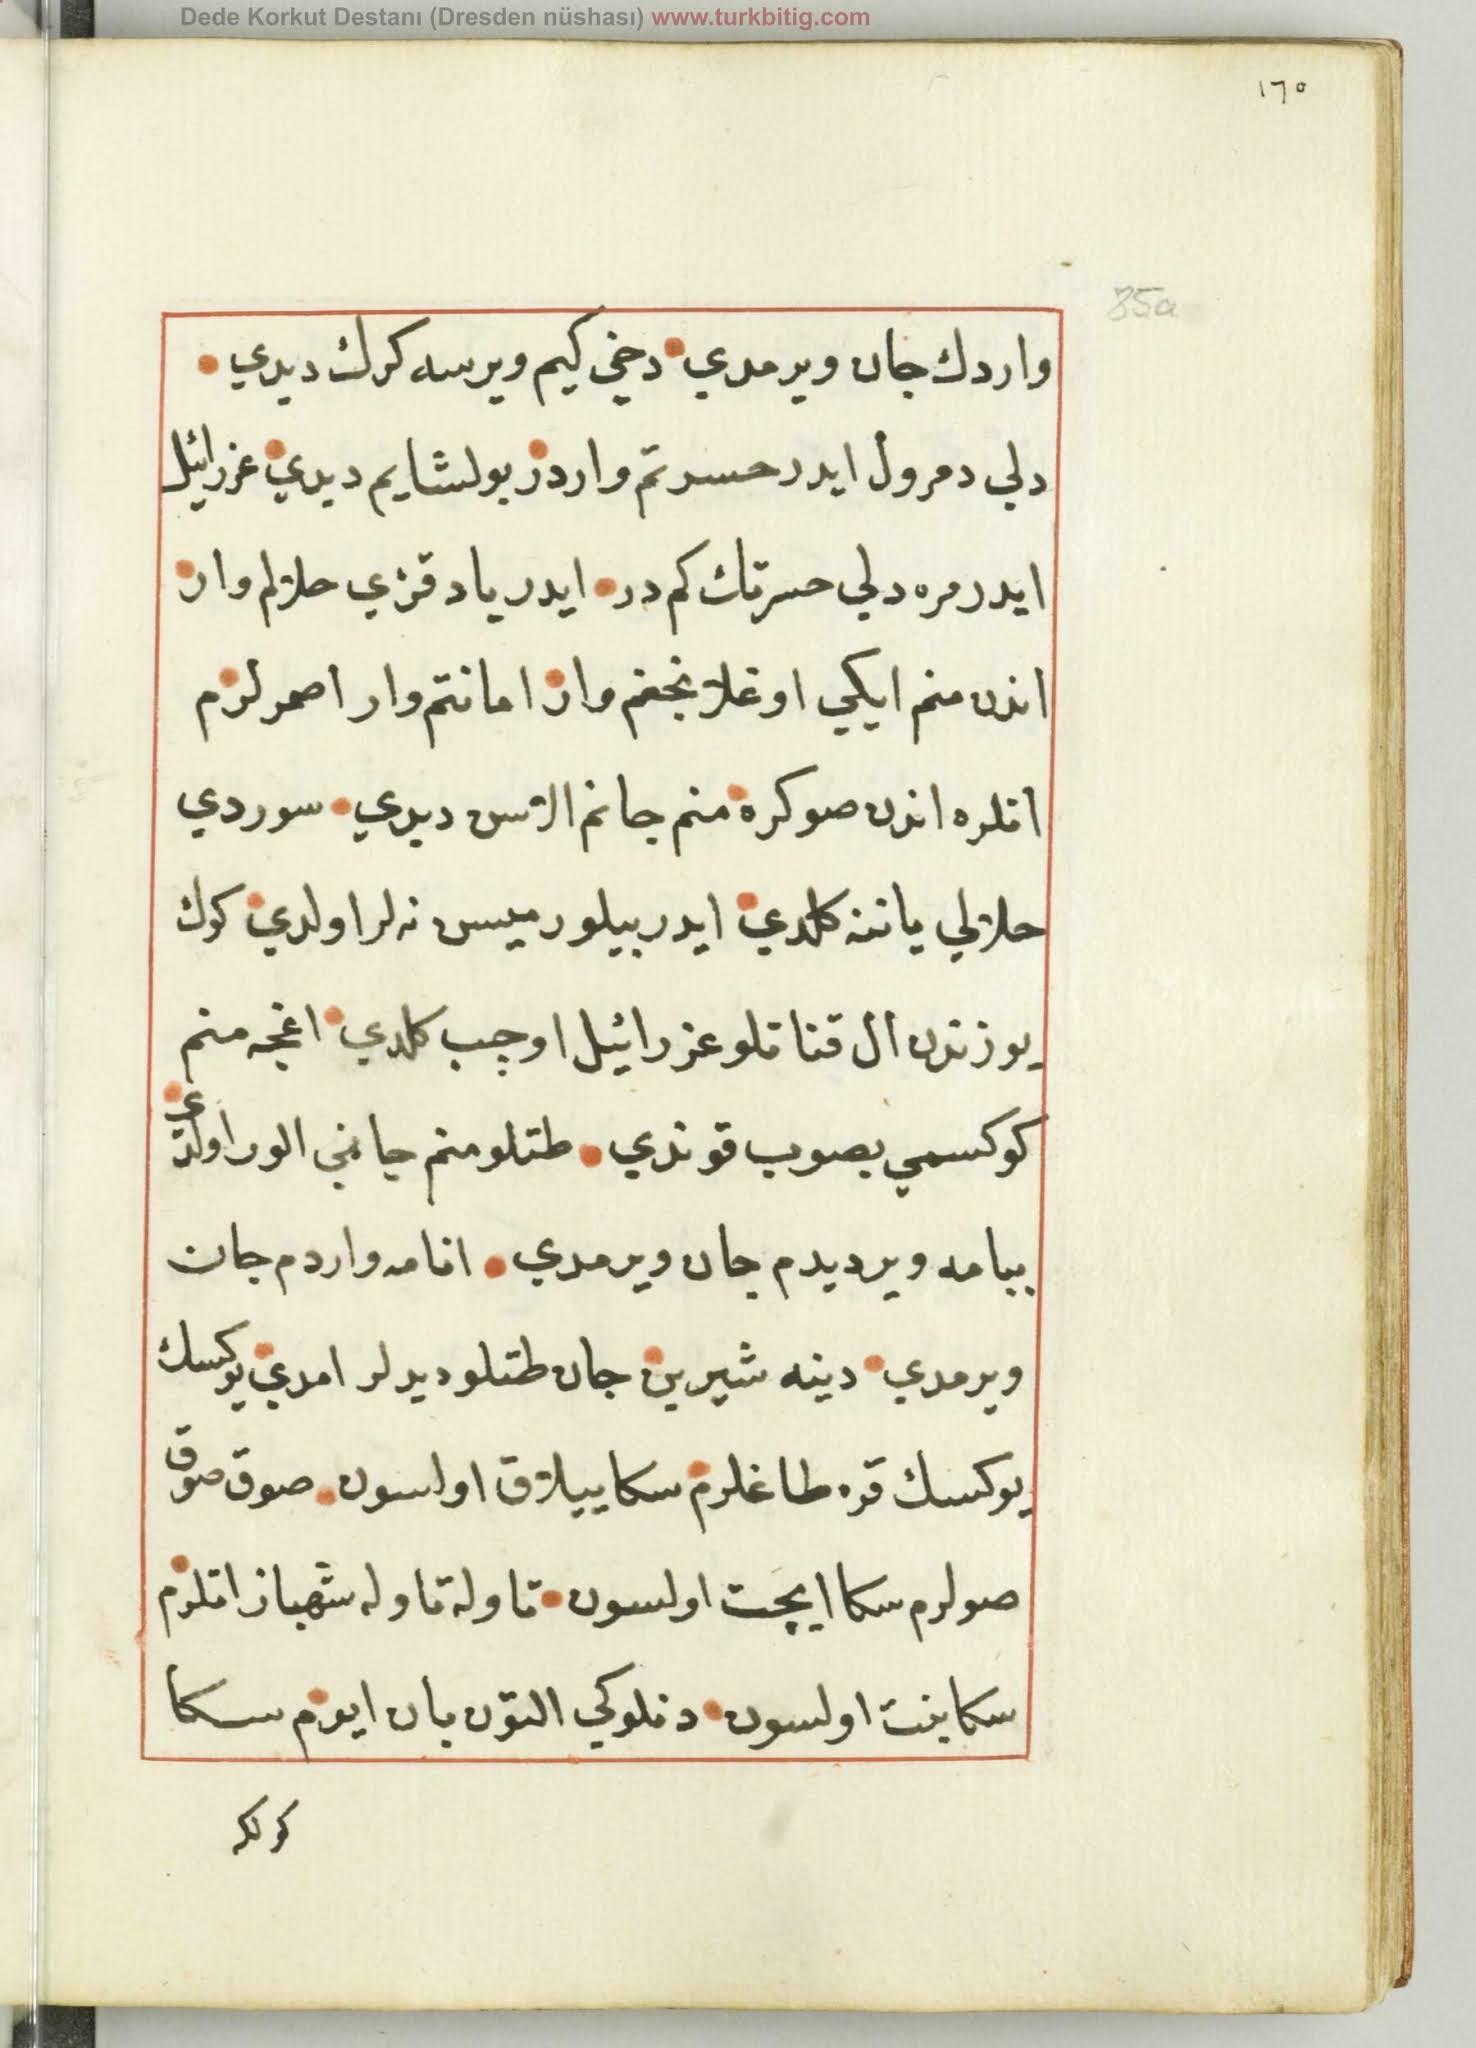 Dede Korkut Destanı (Dresden nüshası) www.turkbitig.com
١٦٥
85a
واردك جان ويرمدي دخي كيم ويرسه كرك ديدي
دلي دمرول ايدر حسرتم واردر بولشايم ديدي عزرائيل
ايدر مره دلي حسرتك كم در ايدر ياد قزي حلالم وار
اندن منم ايكي اوغلانجغم وار امانتم وار اصمرلرم
انلره اندن صوكره منم جانم الاسن ديدي سوردي
حلالي ياننه كلدي ايدر بيلورميسن نه لر اولدي كوك
يوزندن ال قناتلو عزرائيل اوچب كلدي اغجه منم
كوكسمي بصوب قوندي طتلو منم جانمي الور اولدي
ببامه ويرديدم جان ويرمدي انامه واردم جان
ويرمدي دينه شيرين جان طتلو ديدلر امدي يوكسك
يوكسك قره طاغلرم سكا ييلاق اولسون صوق صوق
صولرم سكا ايچت اولسون تاوله تاوله شهباز اتلرم
سكا بنت اولسون دنلوكي التون بان ايوم سكا
كولكه